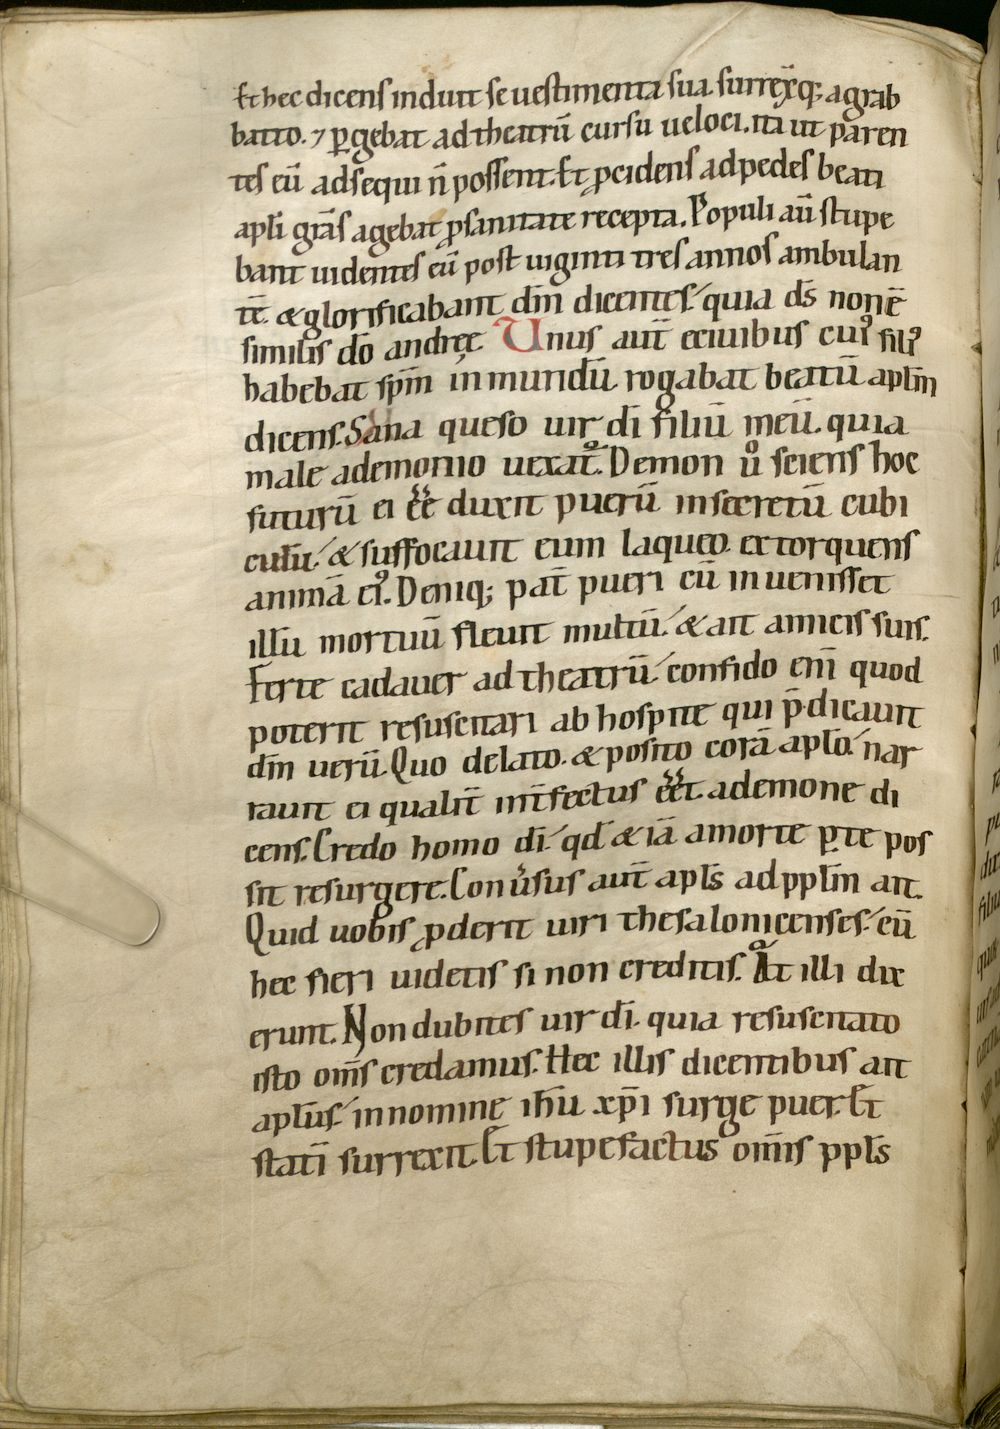 Et hec dicens induit se uestimenta sua. surrexitq; a grab
batto. ⁊ ꝑgebat ad theatrū cursu ueloci. ita ut paren
tes eū adsequi n̄ possent. Et ꝓcidens ad pedes beati
apl̄i gr̄as agebat ꝓ sanitate recepta. Populi aū stupe
bant uidentes eū post uiginti tres annos ambulan
tē. & glorificabant dn̄m dicentes. quia ds̄ non ē
similis dō andreę. Unus aut̄ e ciuibus cuiꝰ filiꝰ
habebat sp̄m inmundū. rogabat beatū apl̄m
dicens. Sana queso uir dī filiū meū. quia
male a demonio uexat᷒. Demon ů sciens hoc
futurū ei eē. duxit puerū in secretū cubi
culū. & suffocauit eum laqueo. extorquens
animā eiꝰ. Deniq; pat̄ pueri cū inuenisset
illū mortuū. fleuit multū. & ait amicis suis.
Ferte cadauer ad theatrū. confido eni̅ quod
poterit resuscitari ab hospite qui p̄dicauit
dm̄ uerū. Quo delato. & posito corā apl̄o. nar
rauit ei qualit̄ int̄fectus eēt a demone di
cens. Credo homo dī. qd̄ & iā a morte ꝑ te pos
sit resurgere. Conu̓sus aut̄ apl̄s ad ppl̄m ait.
Quid uobis ꝓderit uiri thesalonicenses. cū
hec fieri uidetis si non creditis. At illi dix
erunt. Non dubites uir dī. quia resuscitato
isto om̄s credamus. Hec illis dicentibus ait
apl̄us. in nomine ih̄u xp̄i surge puer. Et
stati̅ surrexit. Et stupefactus om̄is ppl̄s